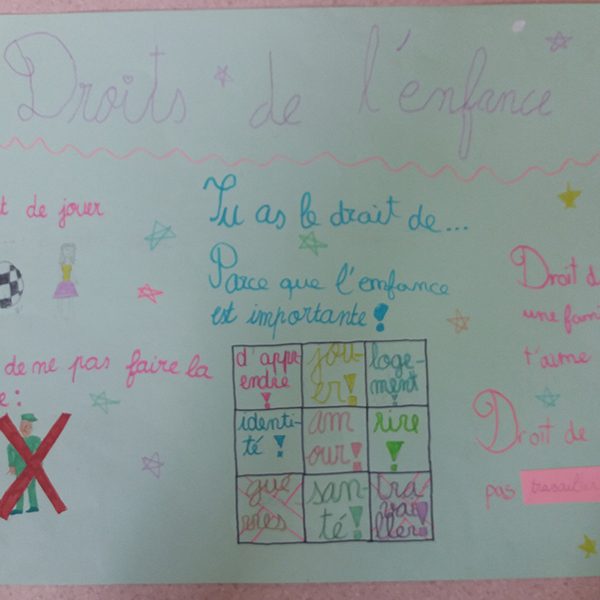 Droits de l'enfance
t de jouer
de ne pas faire la
e:
Tu as le droit de...
Parce que l'enfance
est importante!
d'appr
endre
!
jou-
er!
loge-
ment
!
identi-
té!
am
our!
rire
!
gue
rres
san-
té!
tra
vai
ller!
Droit d
une fami
t'aime
Droit de
pas travailler